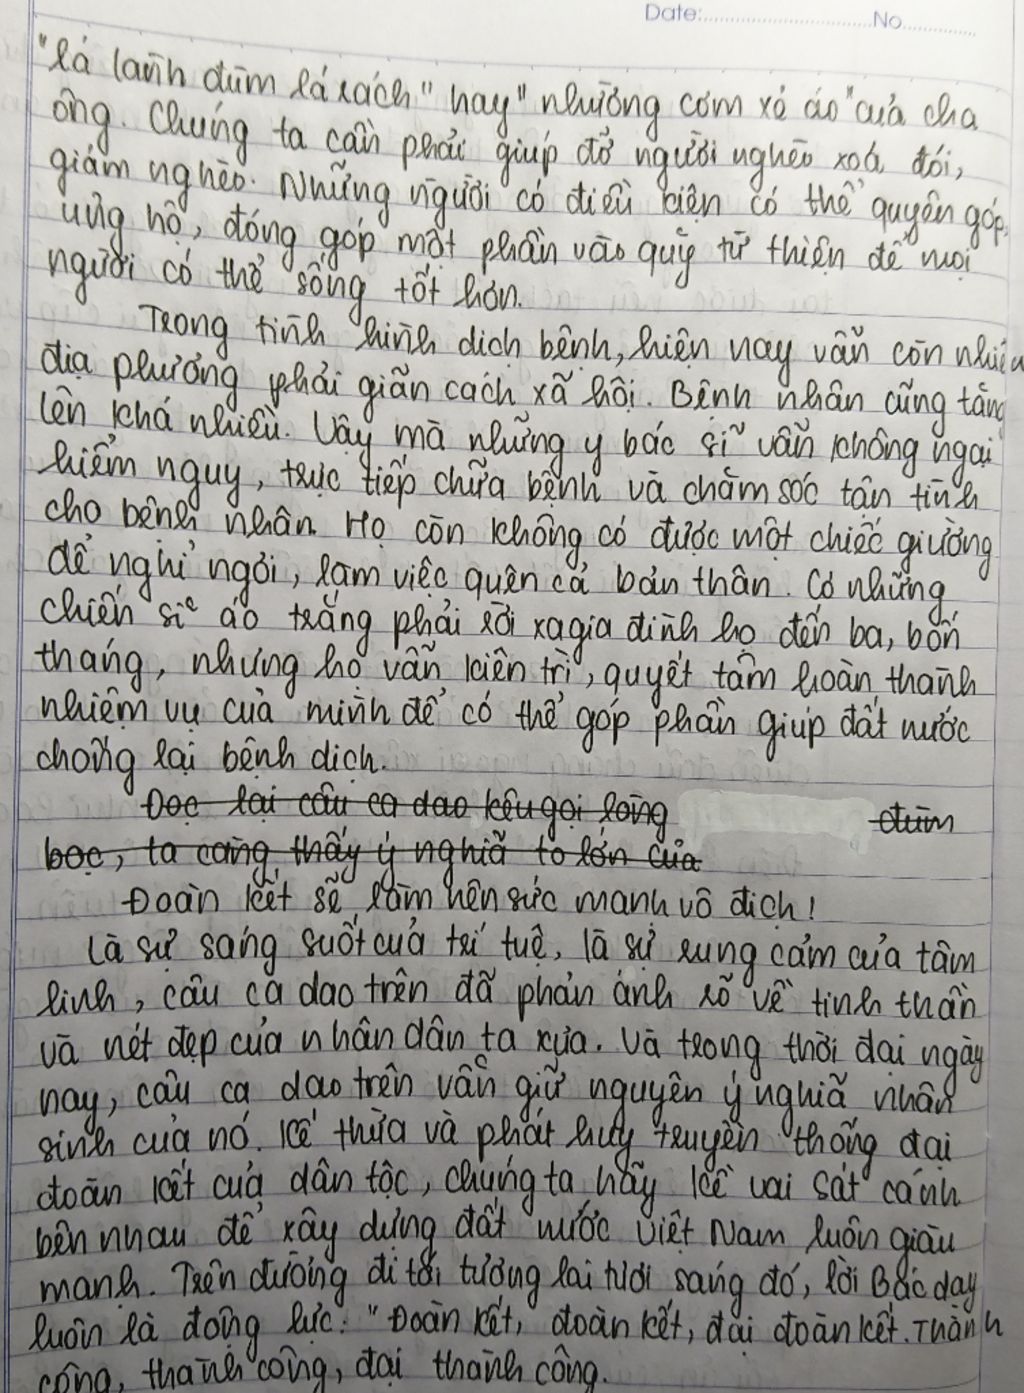 Date:..............................No................
"lá lành đùm lá rách" hay "nhường cơm xẻ áo" của cha
ông. Chúng ta cần phải giúp đỡ người nghèo xoá đói,
giảm nghèo. Những người có điều kiện có thể quyên góp,
ủng hộ, đóng góp một phần vào quỹ từ thiện để mọi
người có thể sống tốt hơn.
Trong tình hình dịch bệnh, hiện nay vẫn còn nhiều
địa phương phải giãn cách xã hội. Bệnh nhân cũng tăng
lên khá nhiều. Vậy mà những y bác sĩ vẫn không ngại
hiểm nguy, trực tiếp chữa bệnh và chăm sóc tận tình
cho bệnh nhân. Họ còn không có được một chiếc giường
để nghỉ ngơi, làm việc quên cả bản thân. Có những
chiến sĩ áo trắng phải rời xa gia đình họ đến ba, bốn
tháng, nhưng họ vẫn kiên trì, quyết tâm hoàn thành
nhiệm vụ của mình để có thể góp phần giúp đất nước
chống lại bệnh dịch.
Đọc lại câu ca dao kêu gọi lòng đùm
bọc, ta càng thấy ý nghĩa to lớn của
Đoàn kết sẽ làm nên sức mạnh vô địch!
Là sự sáng suốt của trí tuệ, là sự rung cảm của tâm
linh, câu ca dao trên đã phản ánh rõ về tinh thần
và nét đẹp của nhân dân ta xưa. Và trong thời đại ngày
nay, câu ca dao trên vẫn giữ nguyên ý nghĩa nhân
sinh của nó. Kế thừa và phát huy truyền thống đại
đoàn kết của dân tộc, chúng ta hãy kề vai sát cánh
bên nhau để xây dựng đất nước Việt Nam luôn giàu
mạnh. Trên đường đi tới tương lai tươi sáng đó, lời Bác dạy
luôn là động lực: "Đoàn kết, đoàn kết, đại đoàn kết. Thành
công, thành công, đại thành công.